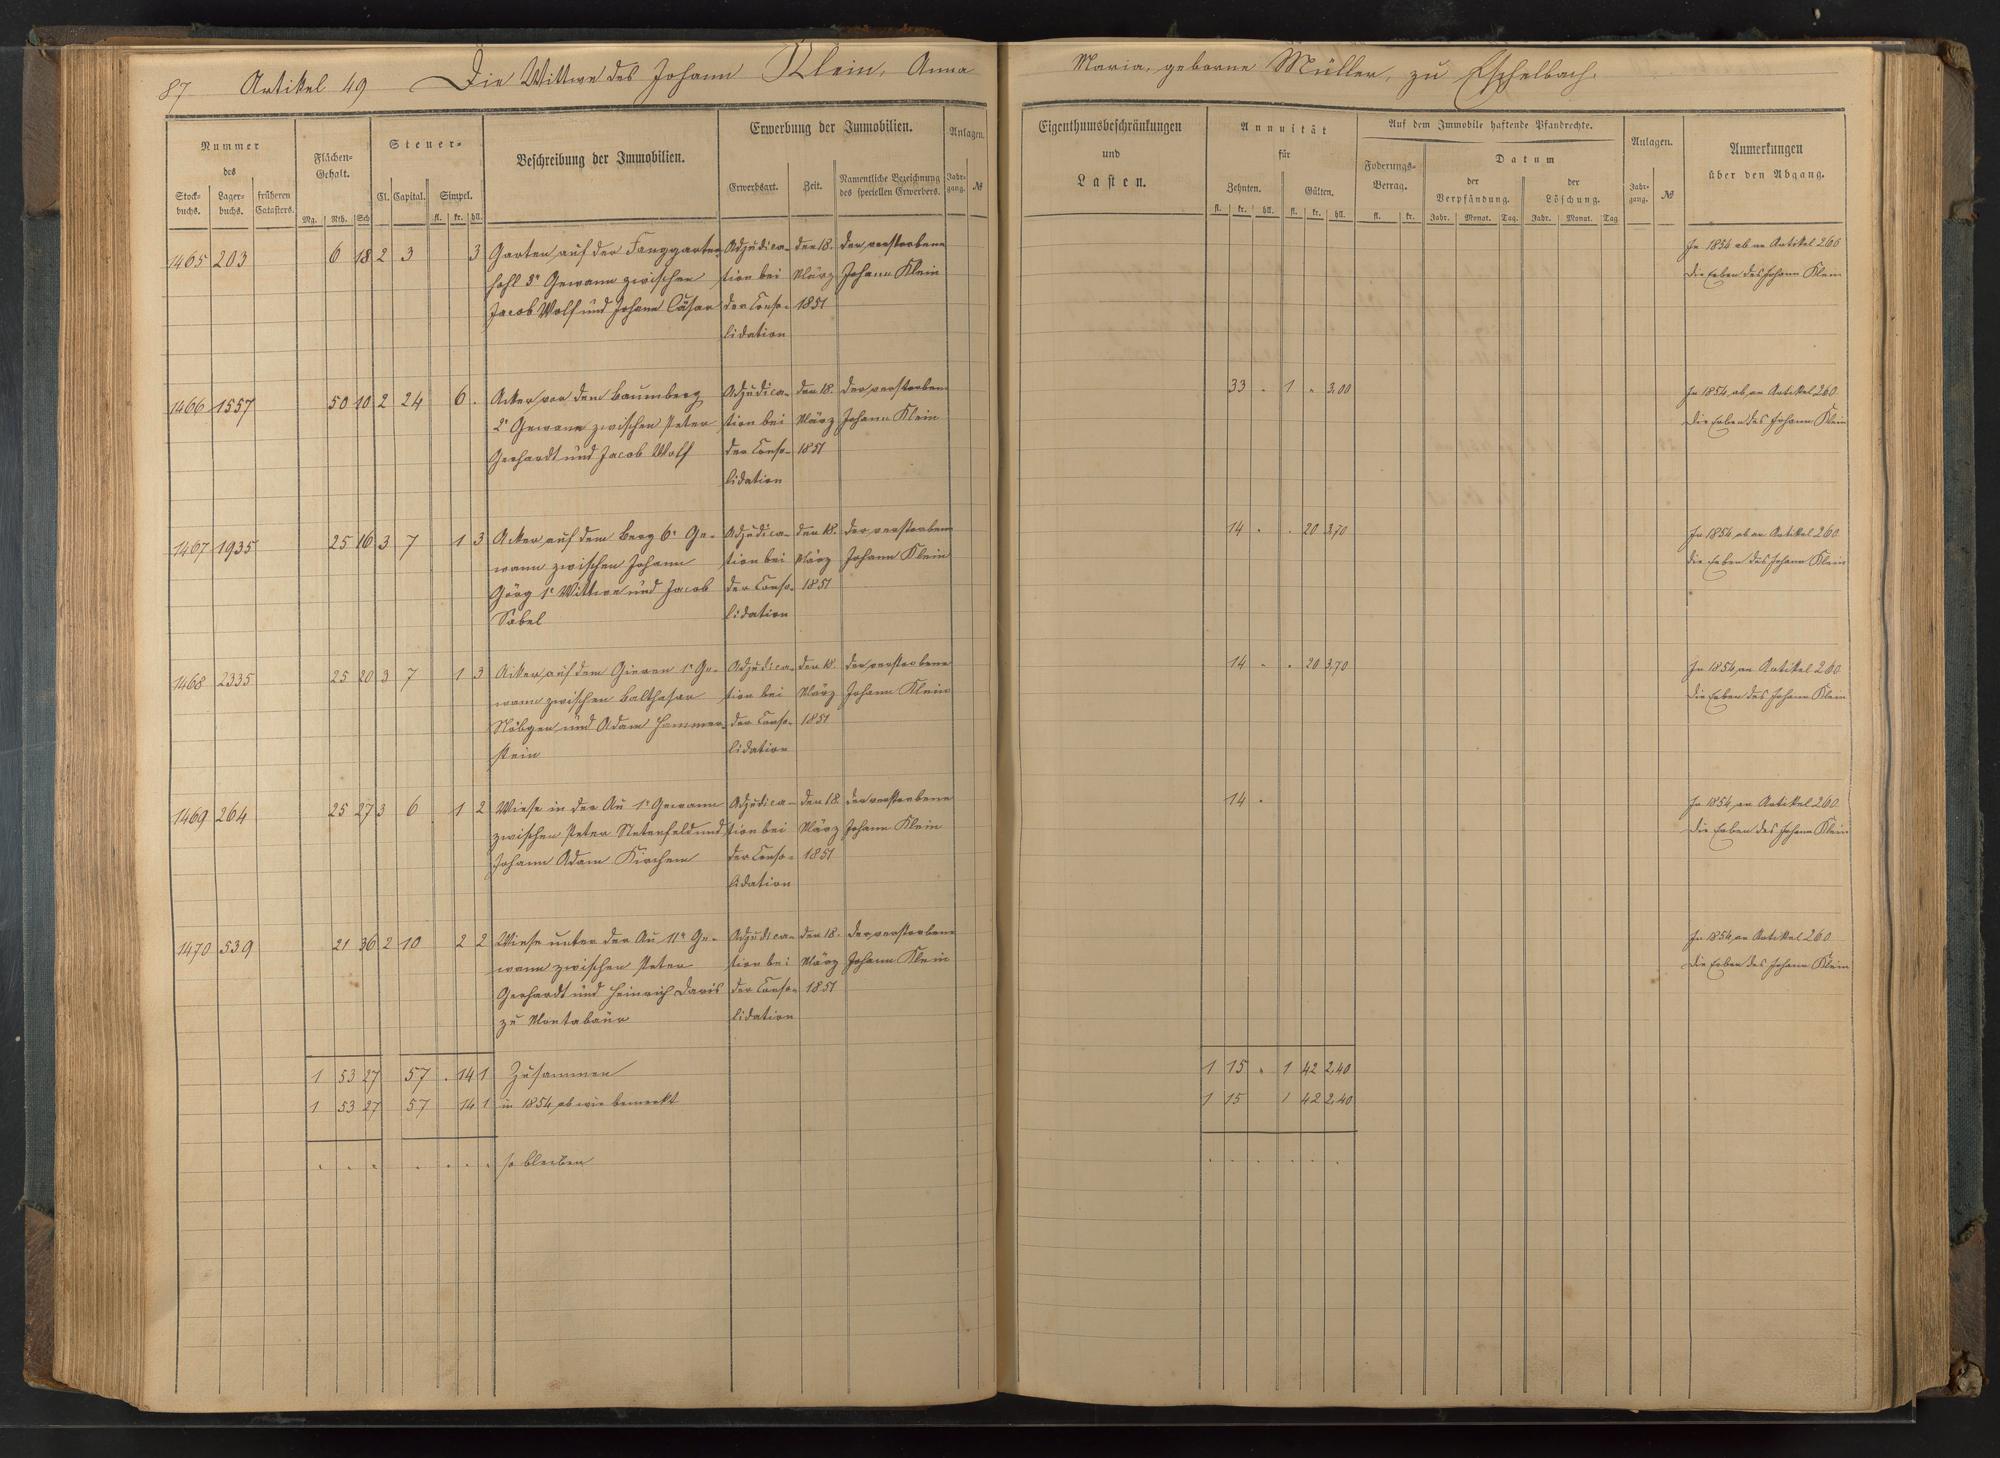 87 Artikel 49 Die Wittwe des Johann Klein, Anna Maria, geborne Müller, zu Eschelbach.
Nummer
des
Stock-buchs. Lager-buchs. früheren Catasters.
Flächen-Gehalt.
Mg. Rth. Sch
Steuer-
Cl. Capital. Simpel.
fl. kr. hll.
Beschreibung der Immobilien.
Erwerbung der Immobilien.
Erwerbsart. Zeit. Namentliche Bezeichnung des speciellen Erwerbers.
Anlagen.
Jahr-gang. №
Eigenthumsbeschränkungen
und
Lasten.
Annuität
für
Zehnten. Gülten.
fl. kr. hll. fl. kr. hll.
Auf dem Immobile haftende Pfandrechte.
Foderungs-Betrag.
fl. kr.
Datum
der Verpfändung. der Löschung.
Jahr. Monat. Tag. Jahr. Monat. Tag
Anlagen.
Jahr-gang. №
Anmerkungen
über den Abgang.
1465 203 6 18 2 3 3 Garten auf der Adjudica- den 18. der verstorbene In 1854 ab an Artikel 260
hohl 3r Gewann zwischen tion bei März Johann Klein die Erben des Johann Klein
Jacob Wolf und Johann Cäsar der Conso- 1851
lidation
1466 1557 50 10 2 24 6 . Acker vor dem Baumberg Adjudica- den 18. der verstorbene 33 . 1 . 3,00 In 1854 ab an Artikel 260
2r Gewann zwischen Peter tion bei März Johann Klein die Erben des Johann Klein
Gerhardt und Jacob Wolf der Conso- 1851
lidation
1467 1935 25 16 3 7 1 3 Acker auf dem Berg 6r Ge- Adjudica- den 18. der verstorbene 14 . . 20 3,70 In 1854 ab an Artikel 260
wann zwischen Johann tion bei März Johann Klein die Erben des Johann Klein
Görg 1r Wittwe und Jacob der Conso- 1851
Sabel lidation
1468 2335 25 20 3 7 1 3 Acker auf dem Gieren 1r Ge- Adjudica- den 18. der verstorbene 14 . . 20 3,70 In 1854 an Artikel 260
wann zwischen Balthasar tion bei März Johann Klein die Erben des Johann Klein
Nöbgen und Adam Hammer- der Conso- 1851
stein lidation
1469 264 25 27 3 6 1 2 Wiese in der Au 1r Gewann Adjudica- den 18. der verstorbene 14 . In 1854 an Artikel 260
zwischen Peter und tion bei März Johann Klein die Erben des Johann Klein
Johann Adam Kirchem der Conso- 1851
lidation
1470 539 21 36 2 10 2 2 Wiese unter der Au 11r Ge- Adjudica- den 18. der verstorbene In 1854 an Artikel 260
wann zwischen Peter tion bei März Johann Klein die Erben des Johann Klein
Gerhardt und Heinrich Daris der Conso- 1851
zu Montabaur lidation
1 53 27 57 . 14 1 Zusammen 1 15 . 1 42 2,40
1 53 27 57 14 1 in 1854 ab wie bemerkt 1 15 1 42 2,40
. . . . . . . so bleiben . . . . . .